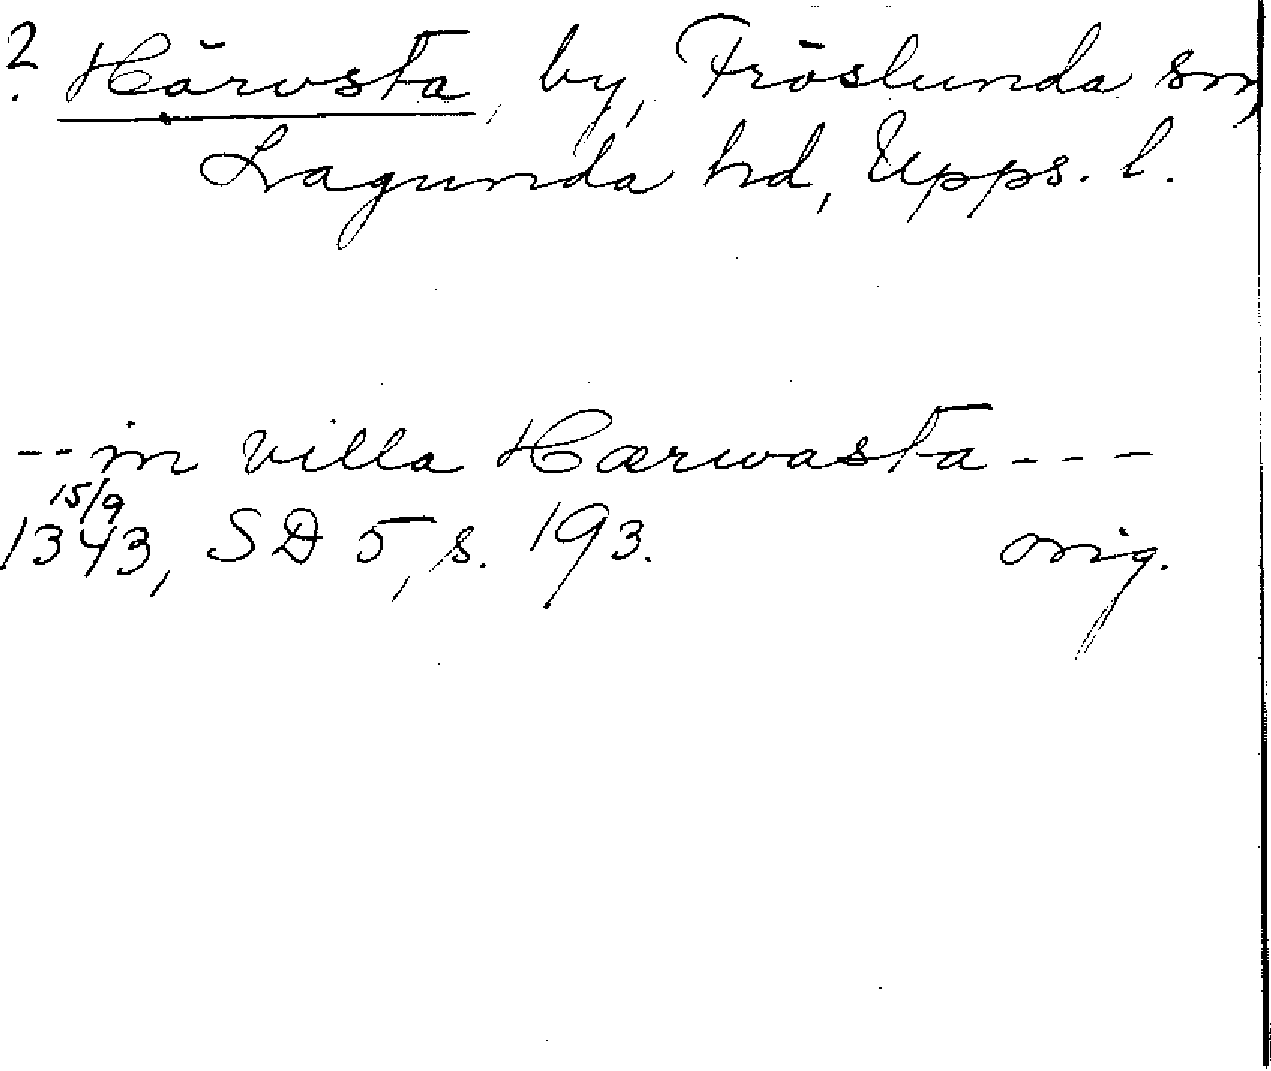 ? Härvsta, by, Fröslunda sn,
Lagunda hd, Upps. l.
-- in villa Hærwasta ---
15/9
1343, SD 5, s. 193. orig.